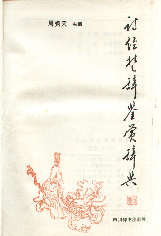 周啸天 主编
诗经楚辞鉴赏辞典
四川辞书出版社